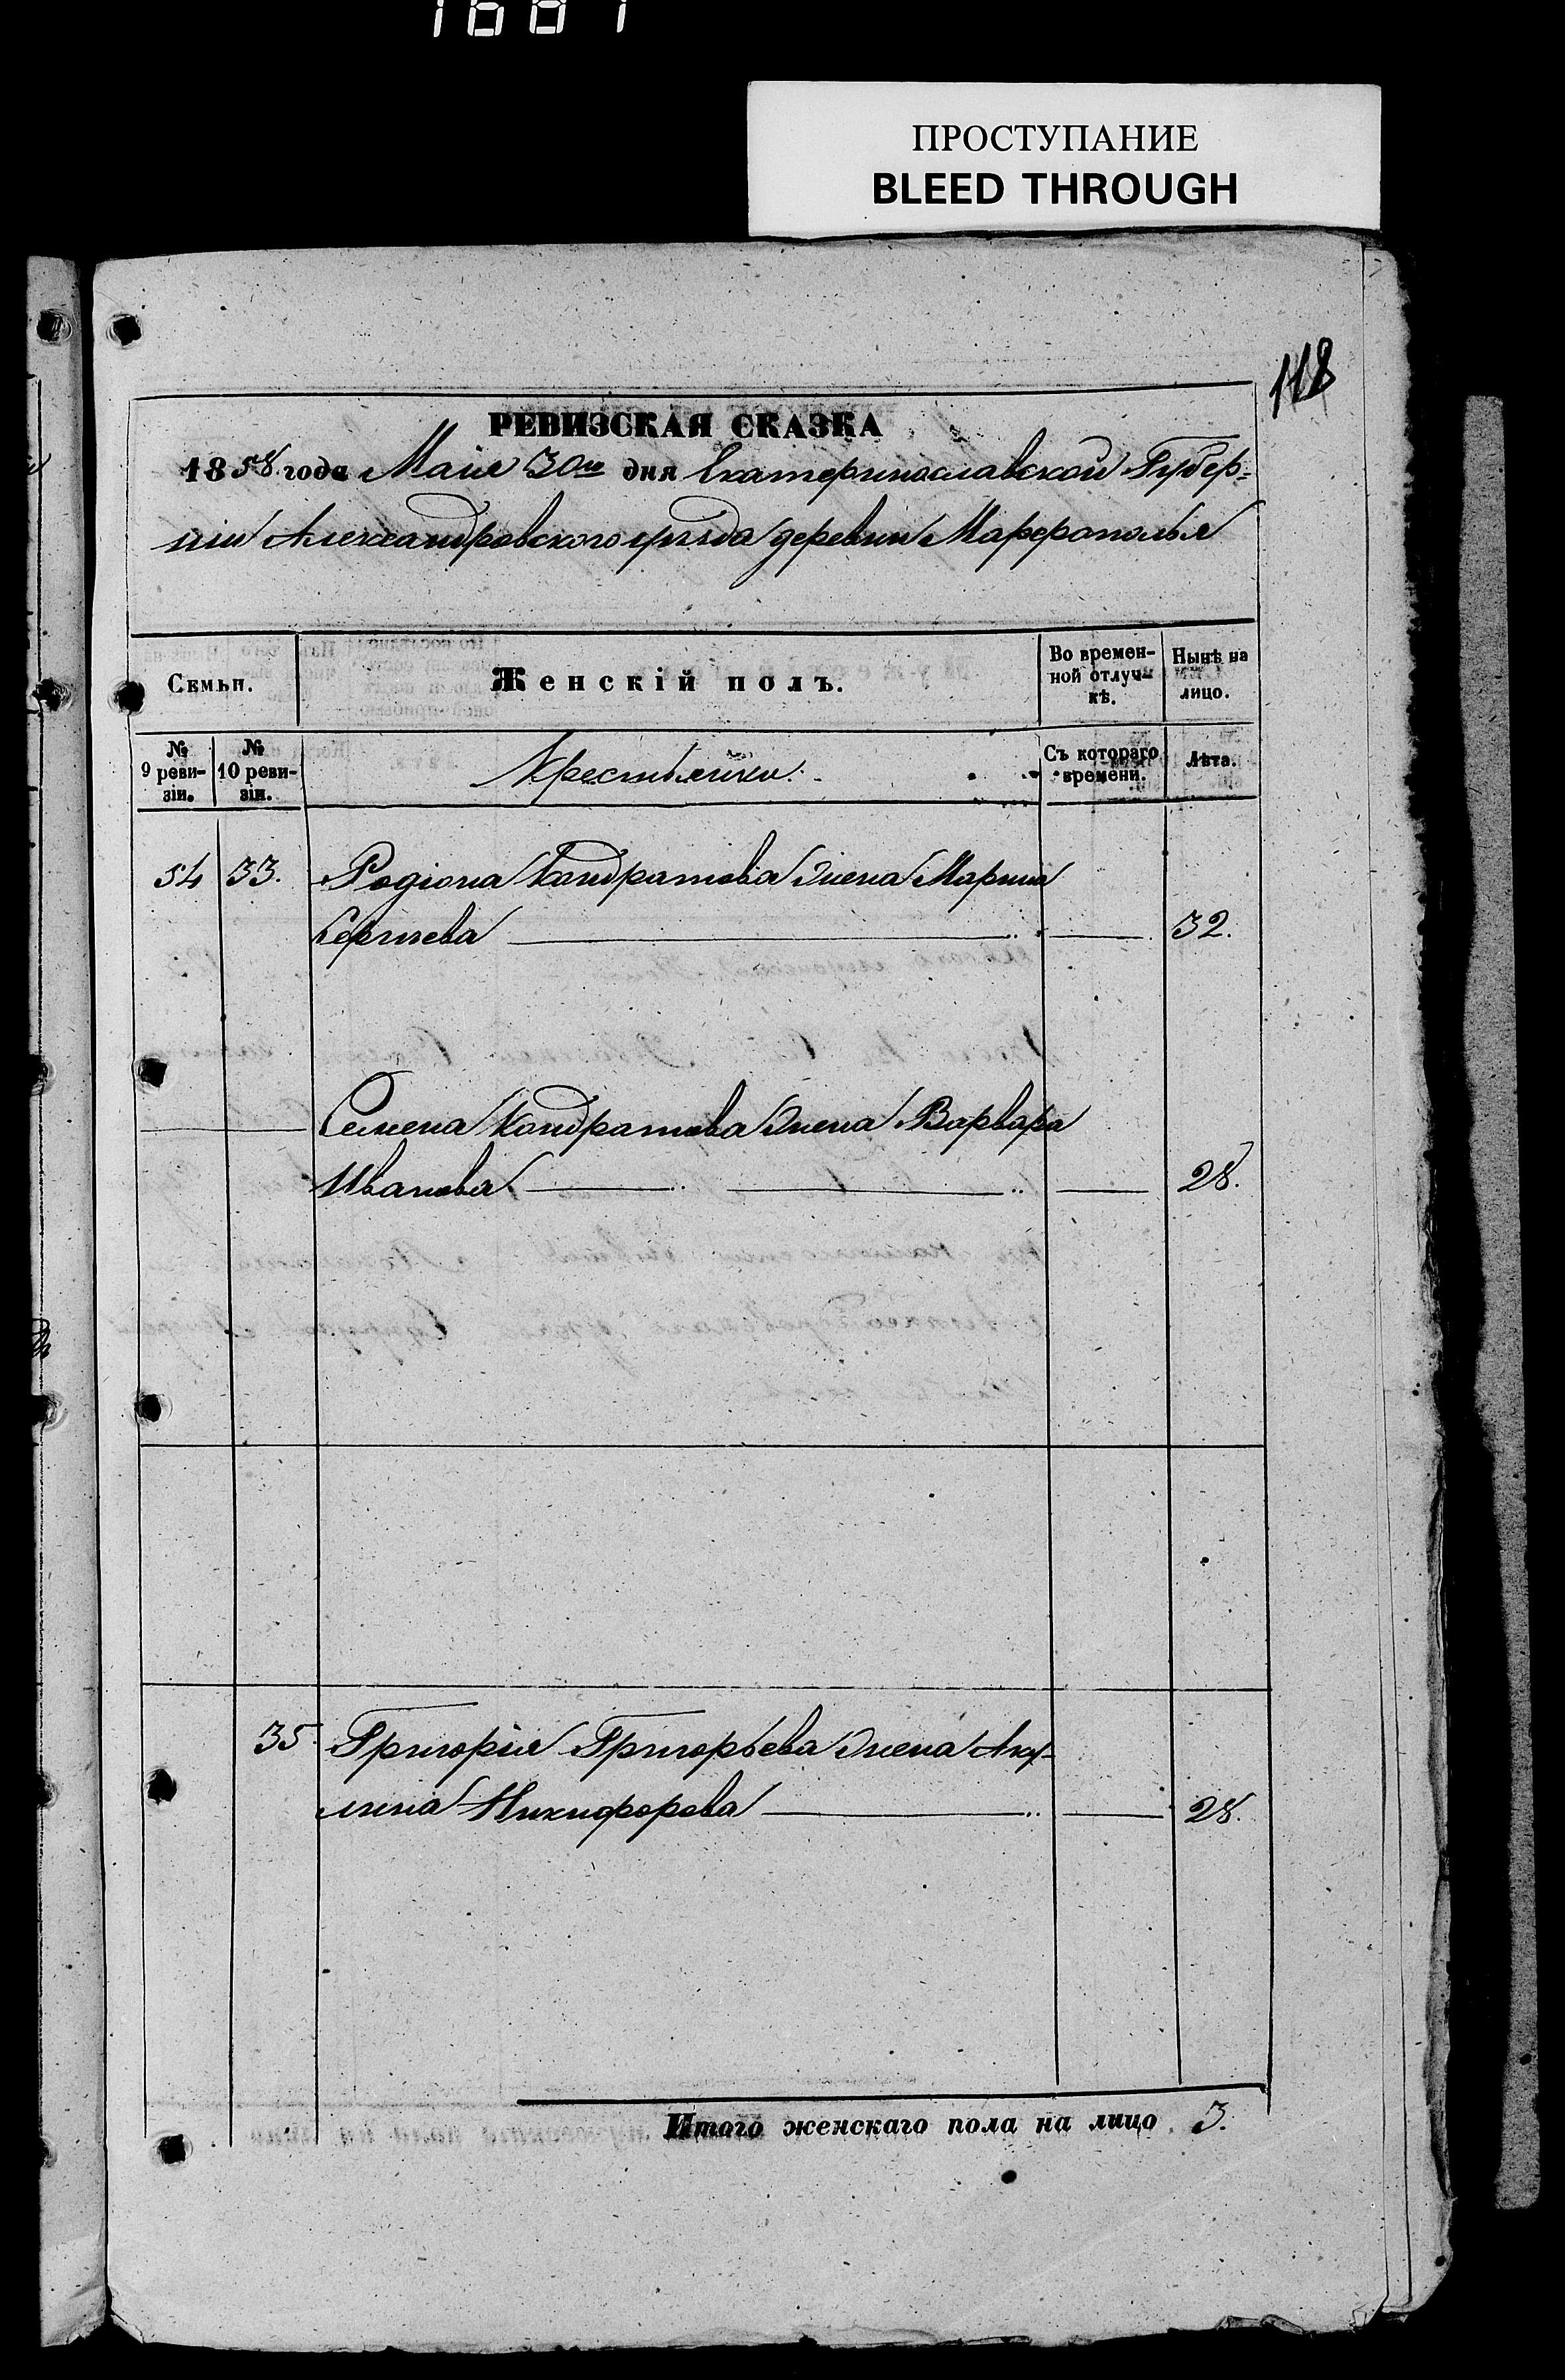 1681
ПРОСТУПАНИЕ
BLEED THROUGH
118
РЕВИЗСКАЯ СКАЗКА
1858 года Маія 30го дня Екатеринославской Губер-
ніи Александровского уѣзда деревни Марфополья
Семьи.
Женскій полъ.
Во времен-
ной отлуч-
кѣ.
Нынѣ на
лицо.
№
9 реви-
зіи.
№
10 реви-
зіи.
Крестьянки.
Съ котораго
времени.
Лѣта.
54 33. Родіона Кондратова жена Марина
Сергѣева 32.
Семена Кондратова жена Варвара
Иванова 28.
35. Григорія Григорьева жена Аку-
лина Никифорова 28.
Итого женскаго пола на лицо 3.